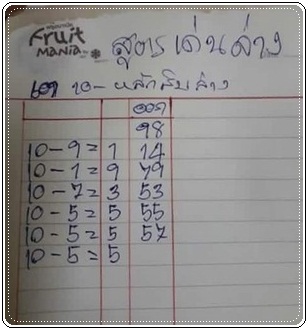 Fruit
MANIA
สูตรเด่นล่าง
เอา 10 - หลักสิบล่าง
ออก
98
10 - 9 = 1 14
10 - 1 = 9 79
10 - 7 = 3 53
10 - 5 = 5 55
10 - 5 = 5 57
10 - 5 = 5